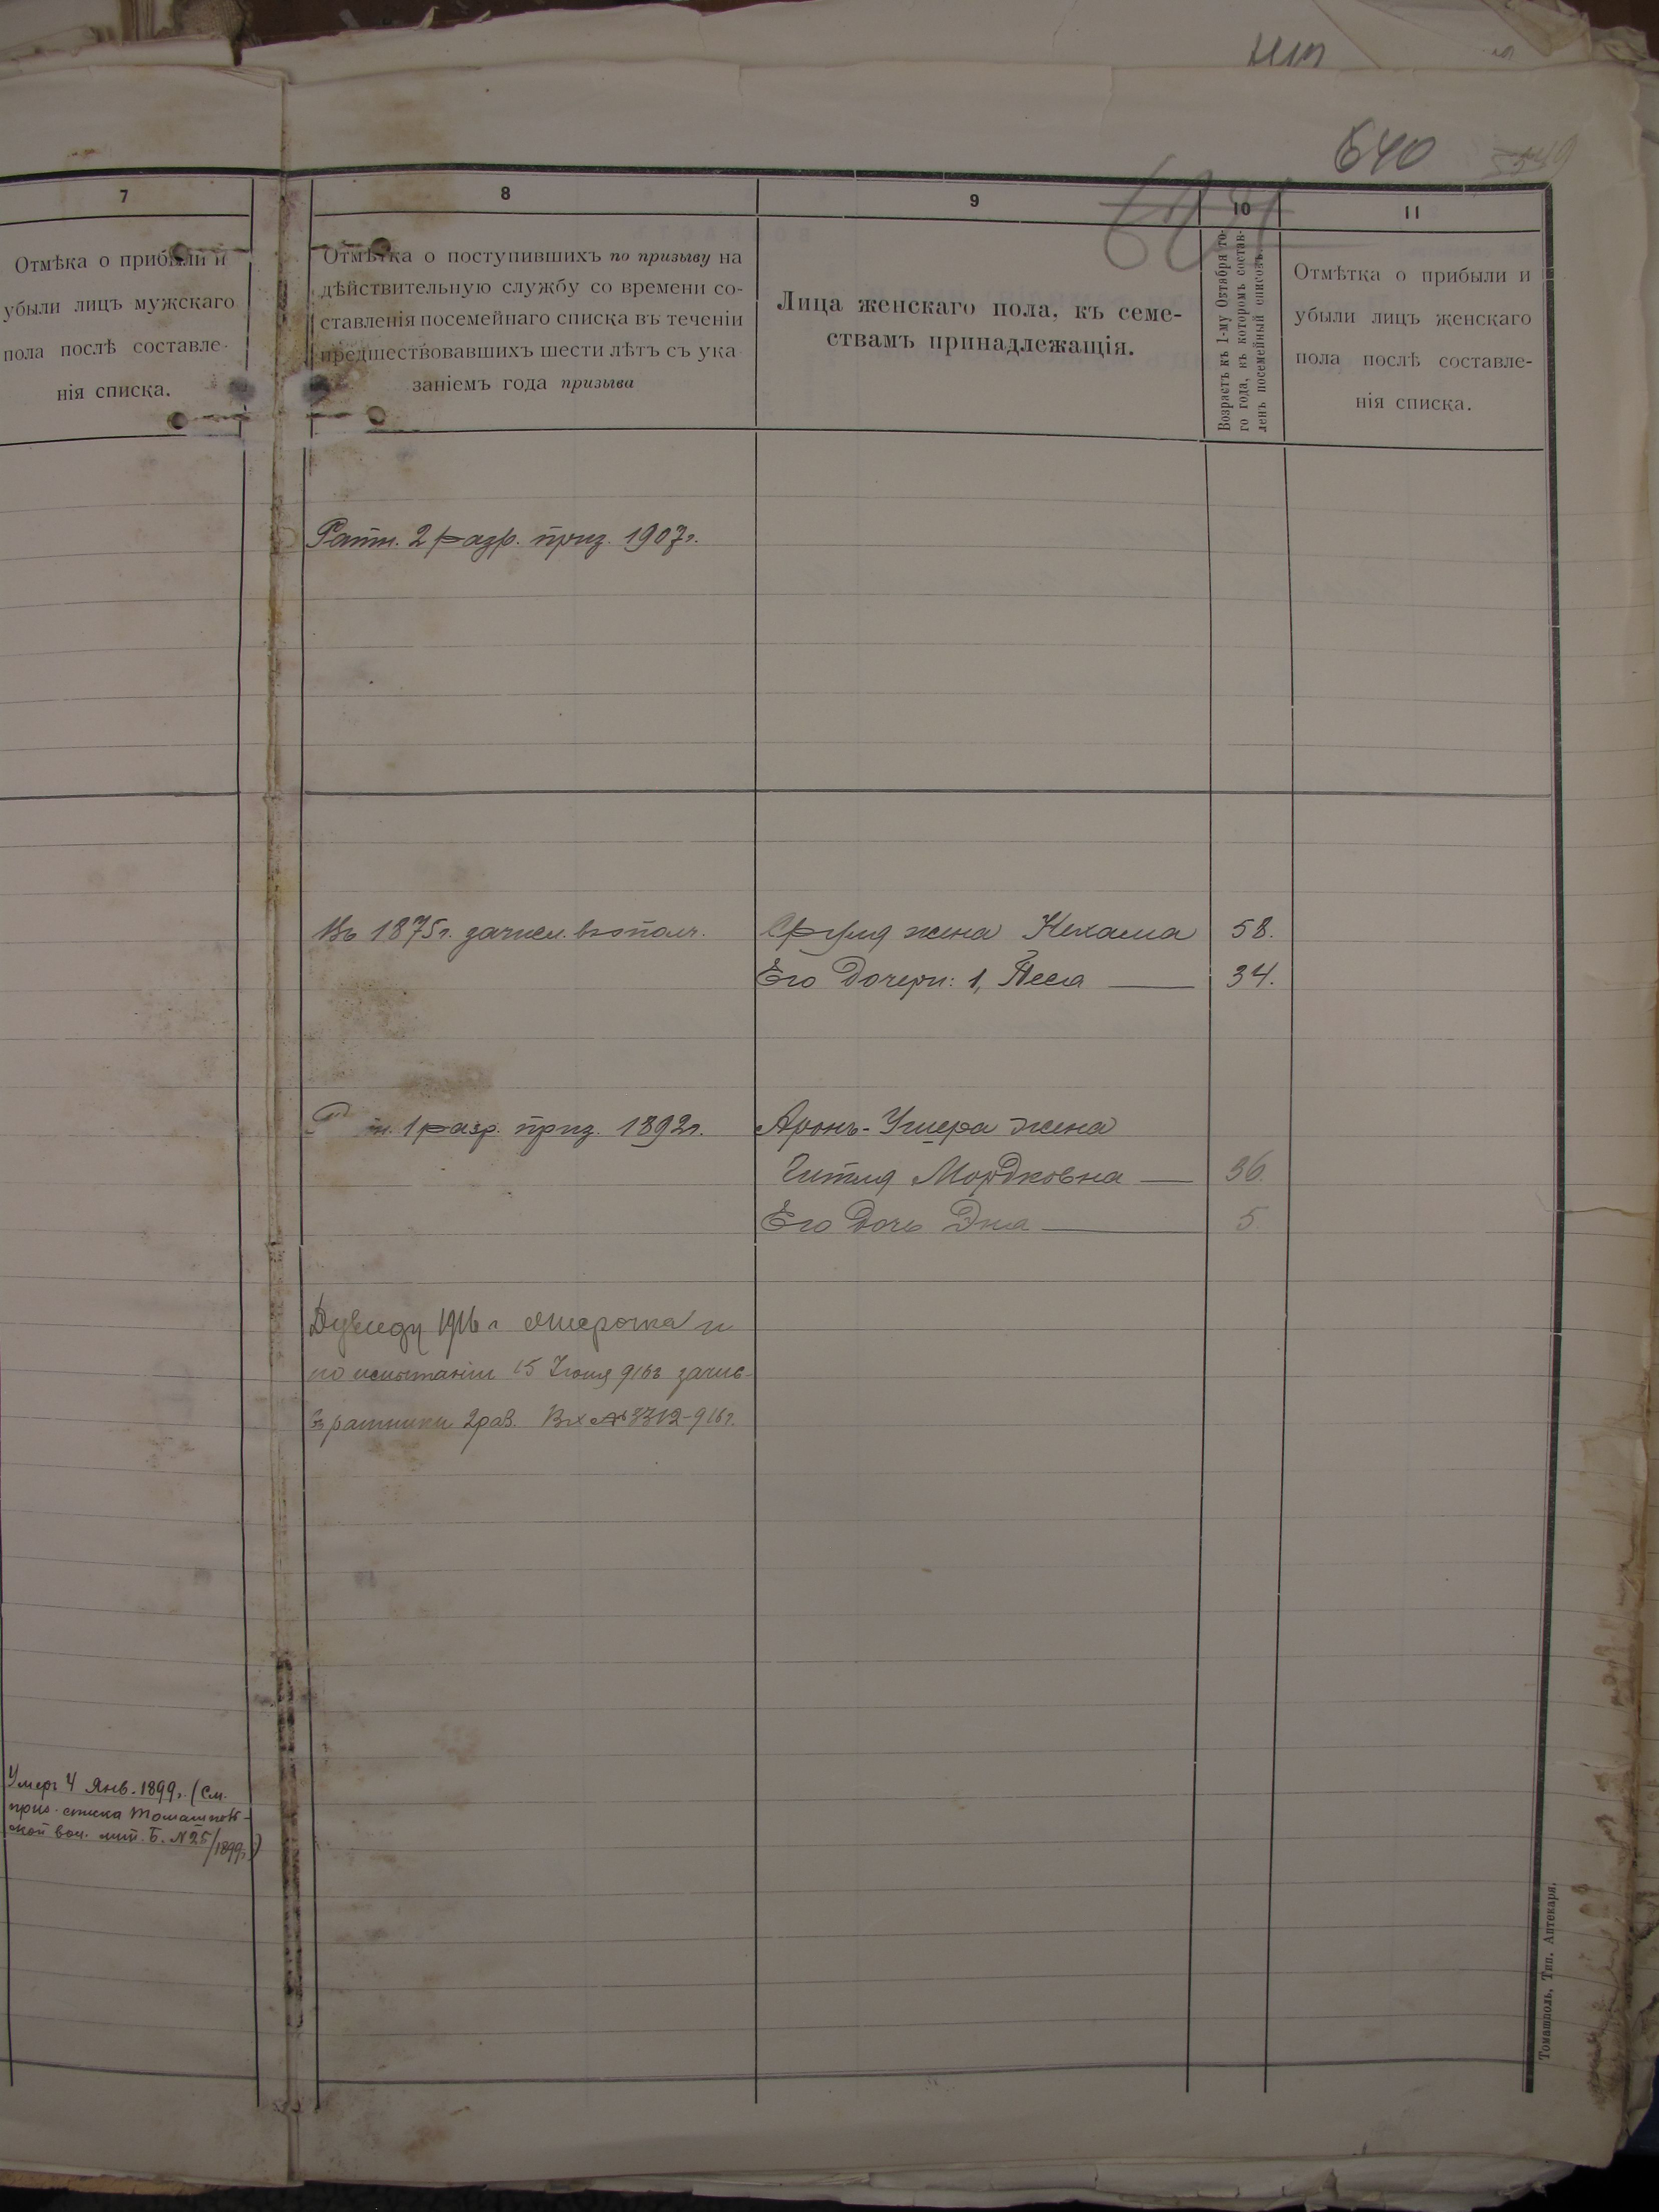 640
7
8
9
10
11
Отмѣка о прибыли и
убыли лицъ мужскаго
пола послѣ составле-
нія списка.
Отмѣтка о поступившихъ по призыву на
дѣйствительную службу со времени со-
ставленія посемейнаго списка въ теченіи
предшествовавшихъ шести лѣтъ съ ука
заніемъ года призыва
Лица женскаго пола, къ семе-
ствамъ принадлежащія.
Возрастъ къ 1-му Октября то-
го года, въ которомъ состав-
ленъ посемейный списокъ.
Отмѣтка о прибыли и
убыли лицъ женскаго
пола послѣ составле-
нія списка.
Ратн. 2 разр. приз. 1907г.
Въ 1875г. зачисл. в ополч.
Сруля жена Нехама 58.
Его дочери: 1, Песя 34.
1 разр. приз. 1892г.
Аронъ-Ушера жена
Гитля Мордковна 36.
Его дочь Эня 5
1916 г отсрочка и
по испытаніи 15 Іюня 916г зачис-
въ ратники 2 раз. Вх № 3312-916г.
Умеръ 4 Янв. 1899г. (См.
приз. списка Томашполь-
ской вол. лит. Б. N 25/1899г.)
Томашполь, Тип. Аптекаря.